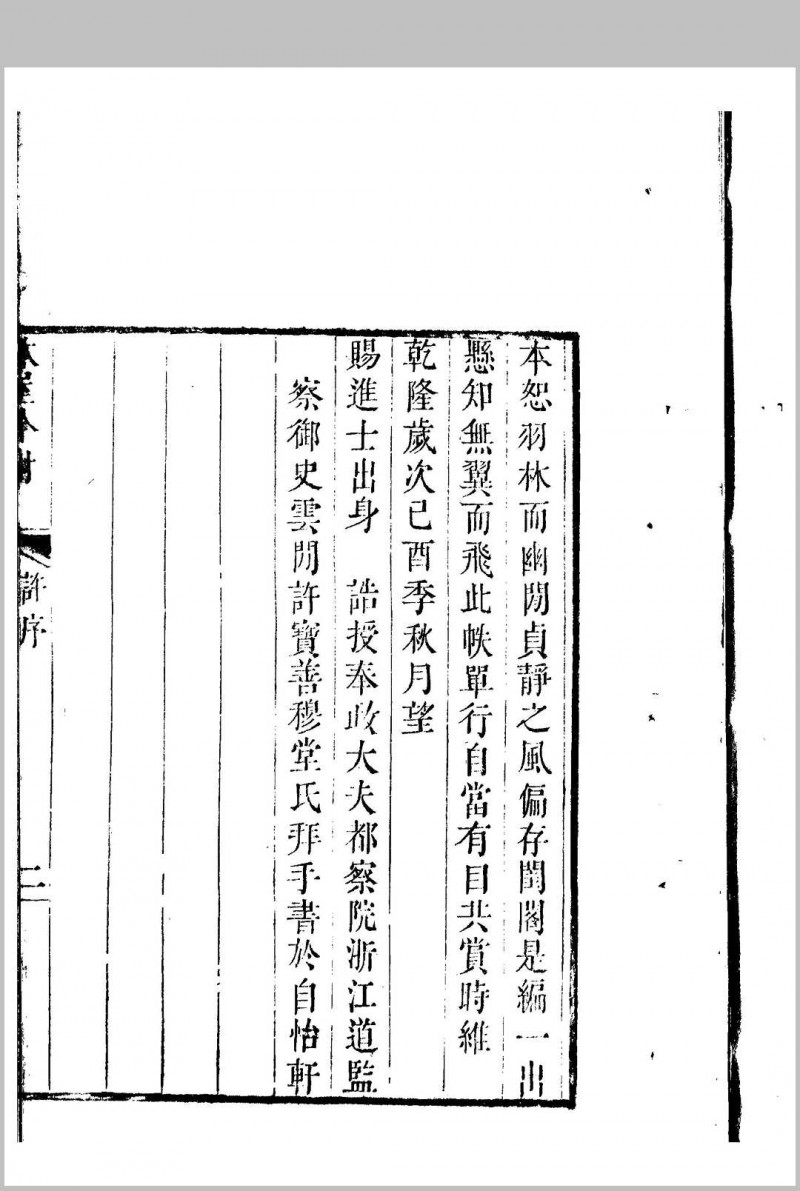 本恕羽林而幽閒貞靜之風偏存閨閣是編一出
懸知無翼而飛此帙單行自當有目共賞時維
乾隆歲次己酉季秋月望
賜進士出身　誥授奉政大夫都察院浙江道監
察御史雲閒許寶善穆堂氏拜手書於自怡軒
許序
二